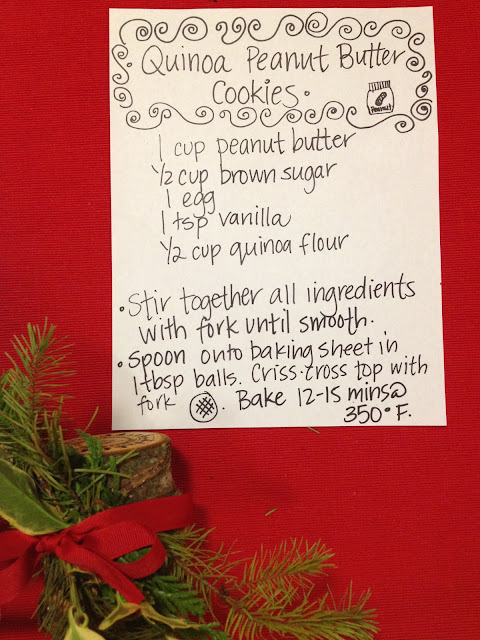 Quinoa Peanut Butter
Cookies.
Peanut
1 cup peanut butter
1/2 cup brown sugar
1 egg
1 tsp vanilla
1/2 cup quinoa flour
• Stir together all ingredients
with fork until smooth.
• Spoon onto baking sheet in
1 tbsp balls. Criss-cross top with
fork . Bake 12-15 mins@
350° F.